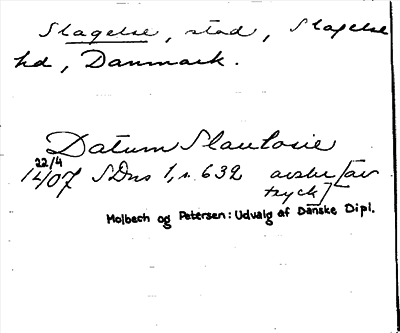 Slagelse, stad, Slagelse
hd, Danmark.
Datum Slaulosie
22/4
1407 SDns 1, s. 632 avskr [av
tryck]
Molbech og Petersen: Udvalg af Danske Dipl.